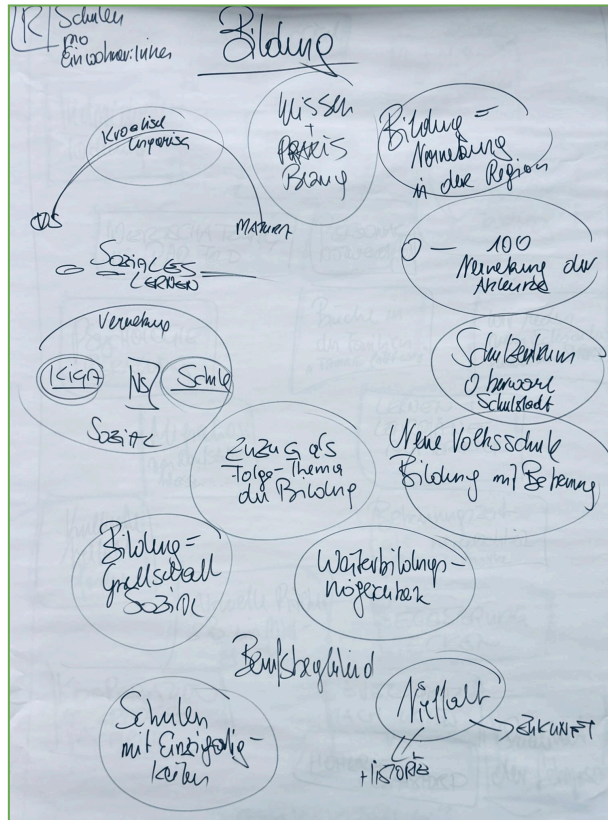 R Schulen
pro
Einwohner:innen
Bildung
Kroatisch
Ungarisch
VS
MATURA
SOZIALES
LERNEN
Wissen
+
PRAXIS
Bezug
Bildung =
Vernetzung
in der Region
0 — 100
Vernetzung der
Vernetzung
KIGA
NS
Schule
SOZIAL
Schulzentrum
Oberwart
Schulstadt
Zuzug als
Folge-Thema
der Bildung
Neue Volksschule
Bildung mit Betreuung
Bildung =
Gesellschaft
SOZIAL
Weiterbildungs-
möglichkeit
Berufsbegleitend
Schulen
mit Einzigartig-
keiten
Vielfalt
ZUKUNFT
HISTORIE